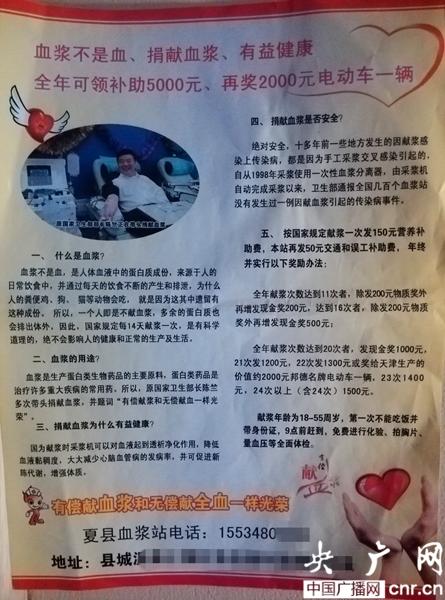 血浆不是血、捐献血浆、有益健康
全年可领补助5000元、再奖2000元电动车一辆
原国家卫生部部长陈竺正在带头捐献血浆
一、 什么是血浆?
血浆不是血，是人体血液中的蛋白质成份，来源于人的
日常饮食中，并通过每天的饮食不断的产生和排泄，为什么
人的粪便鸡、狗、 猫等动物会吃， 就是因为这其中遗留有
这种成份。 所以，一个人即是不献血浆，多余的蛋白质也
会排出体外，因此，国家规定每14天献浆一次，是有科学
道理的，绝不会影响人的健康和正常的生产及生活。
二、血浆的用途?
血浆是生产蛋白类生物药品的主要原料，蛋白类药品是
治疗许多重大疾病的常用药。所以，原国家卫生部长陈兰
多次带头捐献血浆，并题词“有偿献浆和无偿献血一样光
荣”。
三、捐献血浆为什么有益健康?
因为献浆时采浆机可以对血液起到透析净化作用，降低
血液黏稠度，大大减少心脑血管病的发病率，并可促进新
陈代谢，增强体质。
四、 捐献血浆是否安全?
绝对安全，十多年前一些地方发生的因献浆感
染上传染病，都是因为手工采浆交叉感染引起的，
自从1998年采浆使用一次性血浆分离器，由采浆机
自动完成采浆以来，卫生部通报全国几百个血浆站
没有发生过一例因献血浆引起的传染病事件。
五、 按国家规定献浆一次发150元营养补
助费，本站再发50元交通和误工补助费， 年终
并实行以下奖励办法:
全年献浆次数达到11次者，除发200元物质奖外
再增发现金奖200元，达到16次者，除发200元物质
奖外再增发现金奖500元;
全年献浆次数达到20次者，发现金奖1000元，
21次发1200元，22次发1300元或奖给天津生产的
价值约2000元邦德名牌电动车一辆，23次1400
元，24次以上（含24次）1500元。
献浆年龄为18-55周岁，第一次不能吃饭并
带身份证，9点前赶到，免费进行化验、拍胸片、
量血压等全面体检。
有偿献血浆和无偿献全血一样光荣
夏县血浆站电话: 1553480
地址: 县城
央广网
中国广播网 cnr.cn